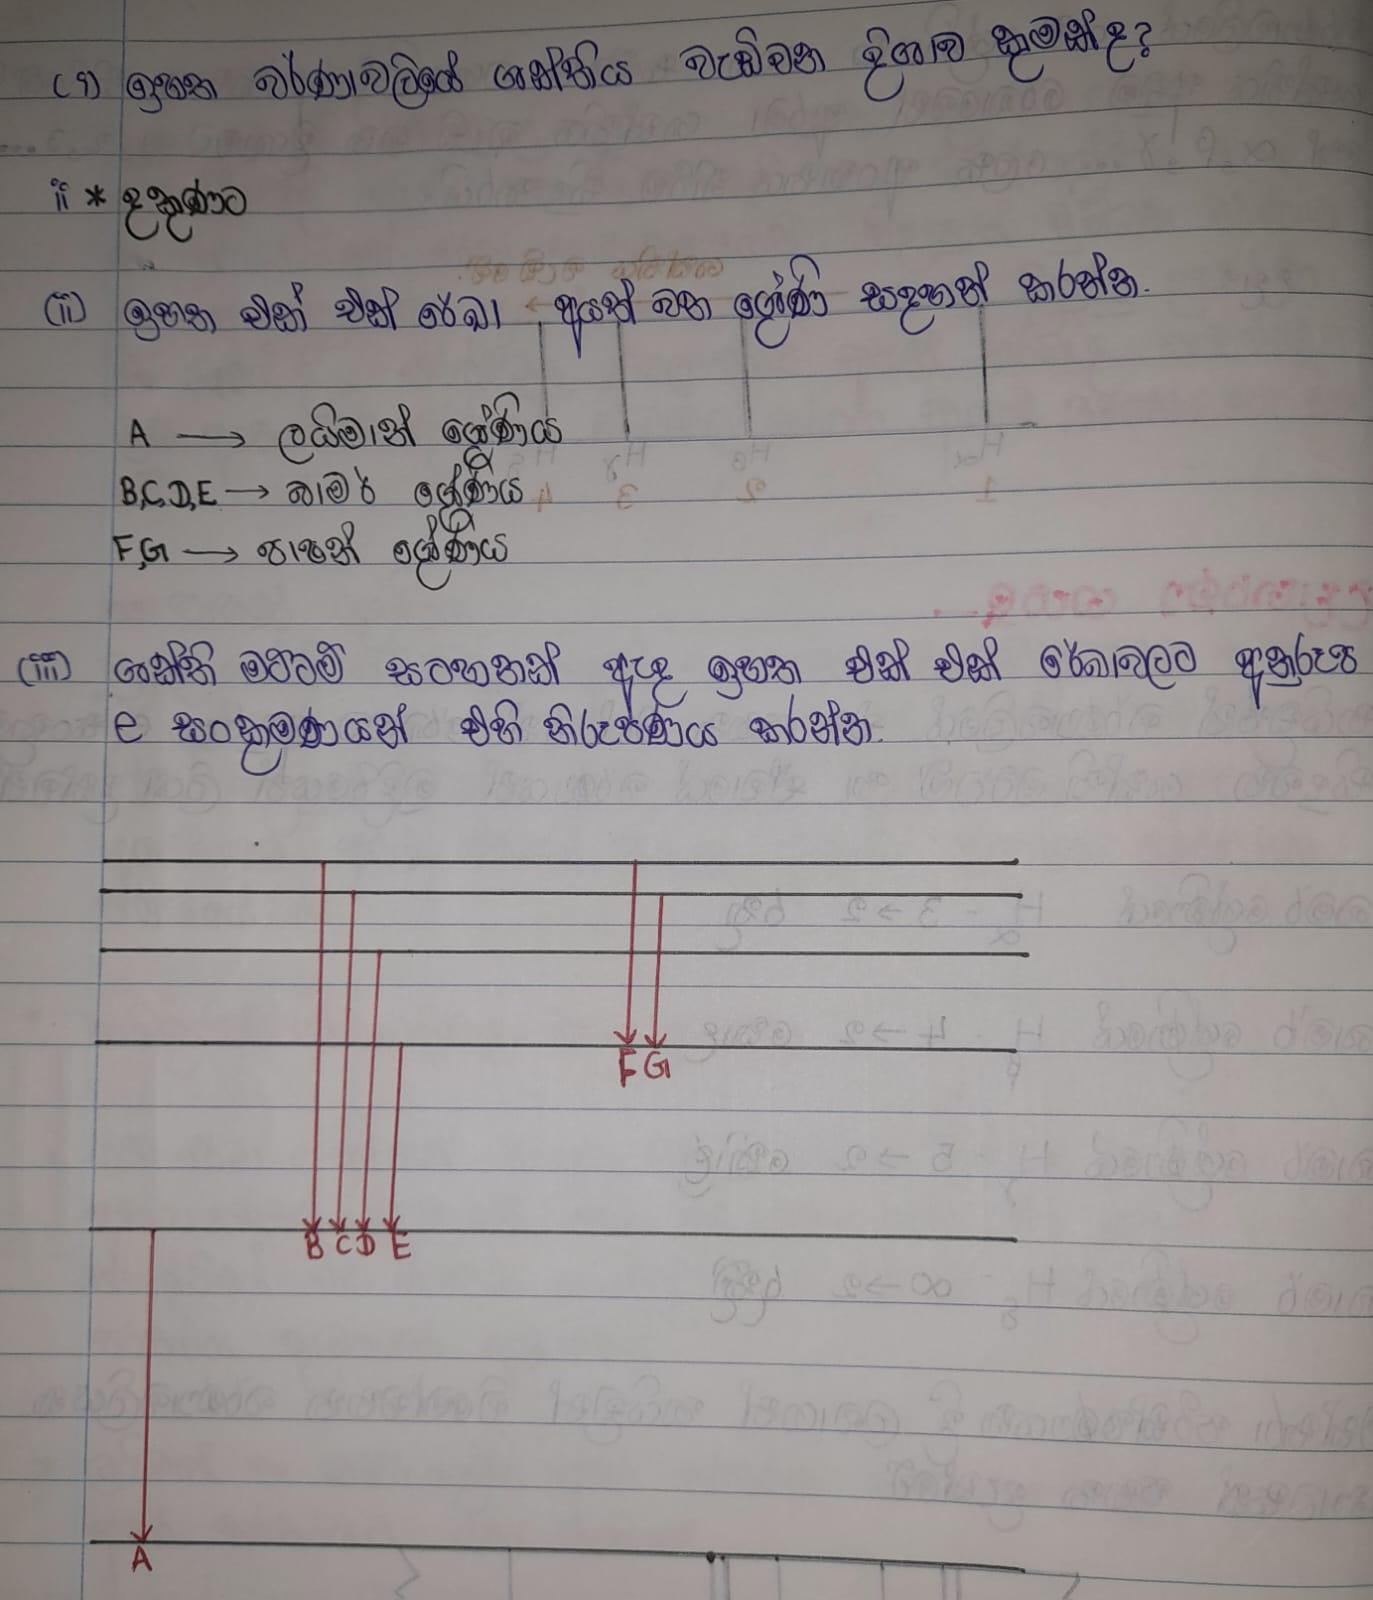 (i) ඉහත වර්ණාවලියේ ශක්තිය වැඩිවන දිශාව කුමක්ද?
ii * දකුණට
(ii) ඉහත එක් එක් රේඛා අයත් වන ශ්‍රේණි සඳහන් කරන්න.
A → ලයිමාන් ශ්‍රේණිය
B,C,D,E → බාමර් ශ්‍රේණිය
F,G → පාෂන් ශ්‍රේණිය
(iii) ශක්ති මට්ටම් සටහනක් ඇඳ ඉහත එක් එක් රේඛාවලට අනුරූප
e සංක්‍රමණයන් එහි නිරූපණය කරන්න.
F G
B C D E
A